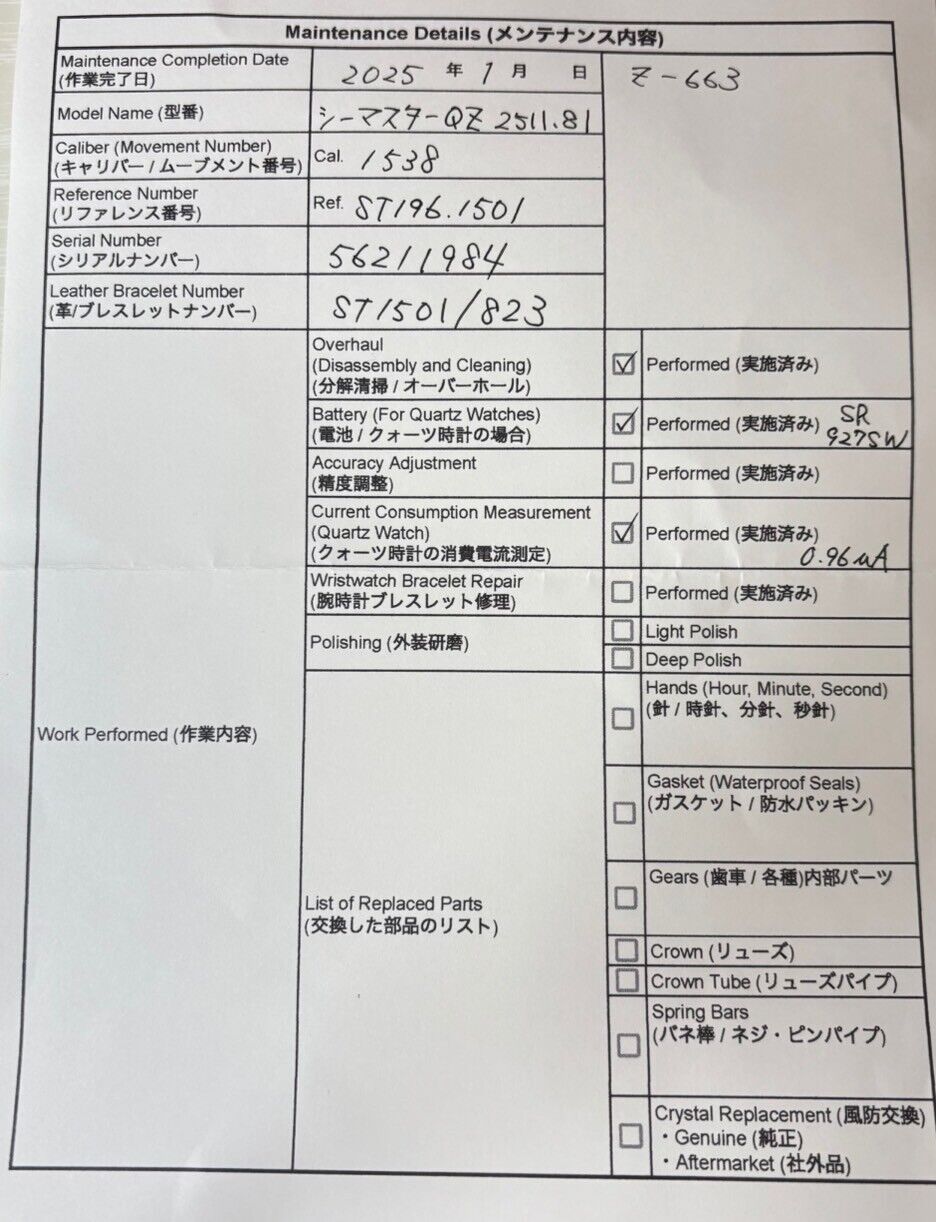 Maintenance Details (メンテナンス内容)
Maintenance Completion Date
(作業完了日)
2025 年 1 月 日
Z-663
Model Name (型番)
シーマスターQZ 2511.81
Caliber (Movement Number)
(キャリバー / ムーブメント番号)
Cal. 1538
Reference Number
(リファレンス番号)
Ref. ST196.1501
Serial Number
(シリアルナンバー)
56211984
Leather Bracelet Number
(革/ブレスレットナンバー)
ST1501/823
Work Performed (作業内容)
Overhaul
(Disassembly and Cleaning)
(分解清掃 / オーバーホール)
☑ Performed (実施済み)
Battery (For Quartz Watches)
(電池 / クォーツ時計の場合)
☑ Performed (実施済み) SR
927SW
Accuracy Adjustment
(精度調整)
☐ Performed (実施済み)
Current Consumption Measurement
(Quartz Watch)
(クォーツ時計の消費電流測定)
☑ Performed (実施済み)
0.96μA
Wristwatch Bracelet Repair
(腕時計ブレスレット修理)
☐ Performed (実施済み)
Polishing (外装研磨)
☐ Light Polish
☐ Deep Polish
List of Replaced Parts
(交換した部品のリスト)
☐ Hands (Hour, Minute, Second)
(針 / 時針、分針、秒針)
☐ Gasket (Waterproof Seals)
(ガスケット / 防水パッキン)
☐ Gears (歯車 / 各種)内部パーツ
☐ Crown (リューズ)
☐ Crown Tube (リューズパイプ)
☐ Spring Bars
(バネ棒 / ネジ・ピンパイプ)
☐ Crystal Replacement (風防交換)
・Genuine (純正)
・Aftermarket (社外品)